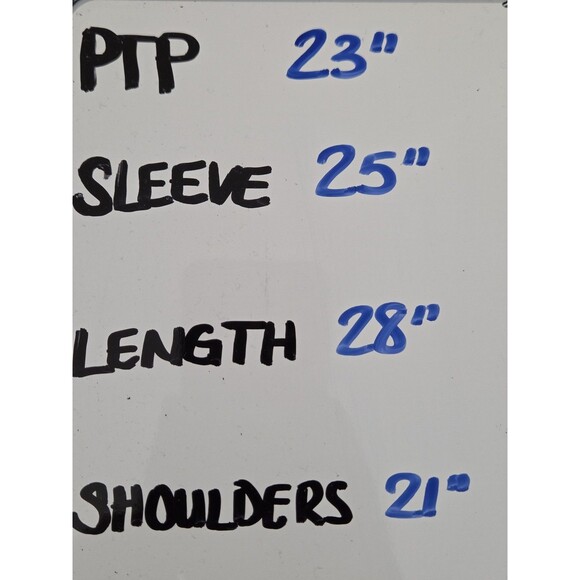 PTP 23"
SLEEVE 25"
LENGTH 28"
SHOULDERS 21"